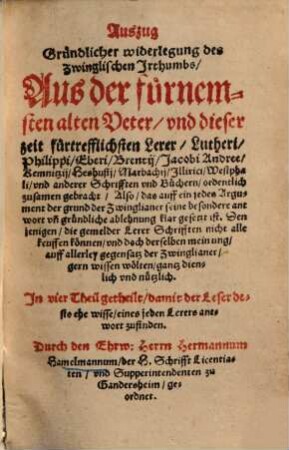 Auszug
Gründlicher widerlegung des
Zwinglischen Irthumbs/
Aus der fürnem-
sten alten Veter/ vnd dieser
zeit fürtrefflichsten Lerer/ Lutheri/
Philippi/ Eberi/ Brentij/ Jacobi Andree/
Kemnizij/ Heshusij/ Marbachij/ Illirici/ Westpha-
li/ vnd anderer Schrifften vnd Büchern/ ordentlich
zusamen gebracht/ Also/ das auff ein jedes Argu-
ment der grund der Zwinglianer/ seine besondere ant
wort vñ gründliche ablehnung klar gesetzt ist. Den
jenigen/ die gemelder Lerer Schrifften nicht alle
keuffen können/ vnd doch derselben meinung/
auff allerley gegensatz der Zwinglianer/
gern wissen wölten/ gantz dienst-
lich vnd nützlich.
In vier Theil getheilt/ damit der Leser de-
sto ehe wisse/ eines jeden Lerers ant-
wort zufinden.
Durch den Ehrw: Herrn Hermannum
Hamelmannum/ der H. Schrifft Licentia-
ten/ vnd Supperintendenten zu
Gandersheim/ ge-
ordnet.